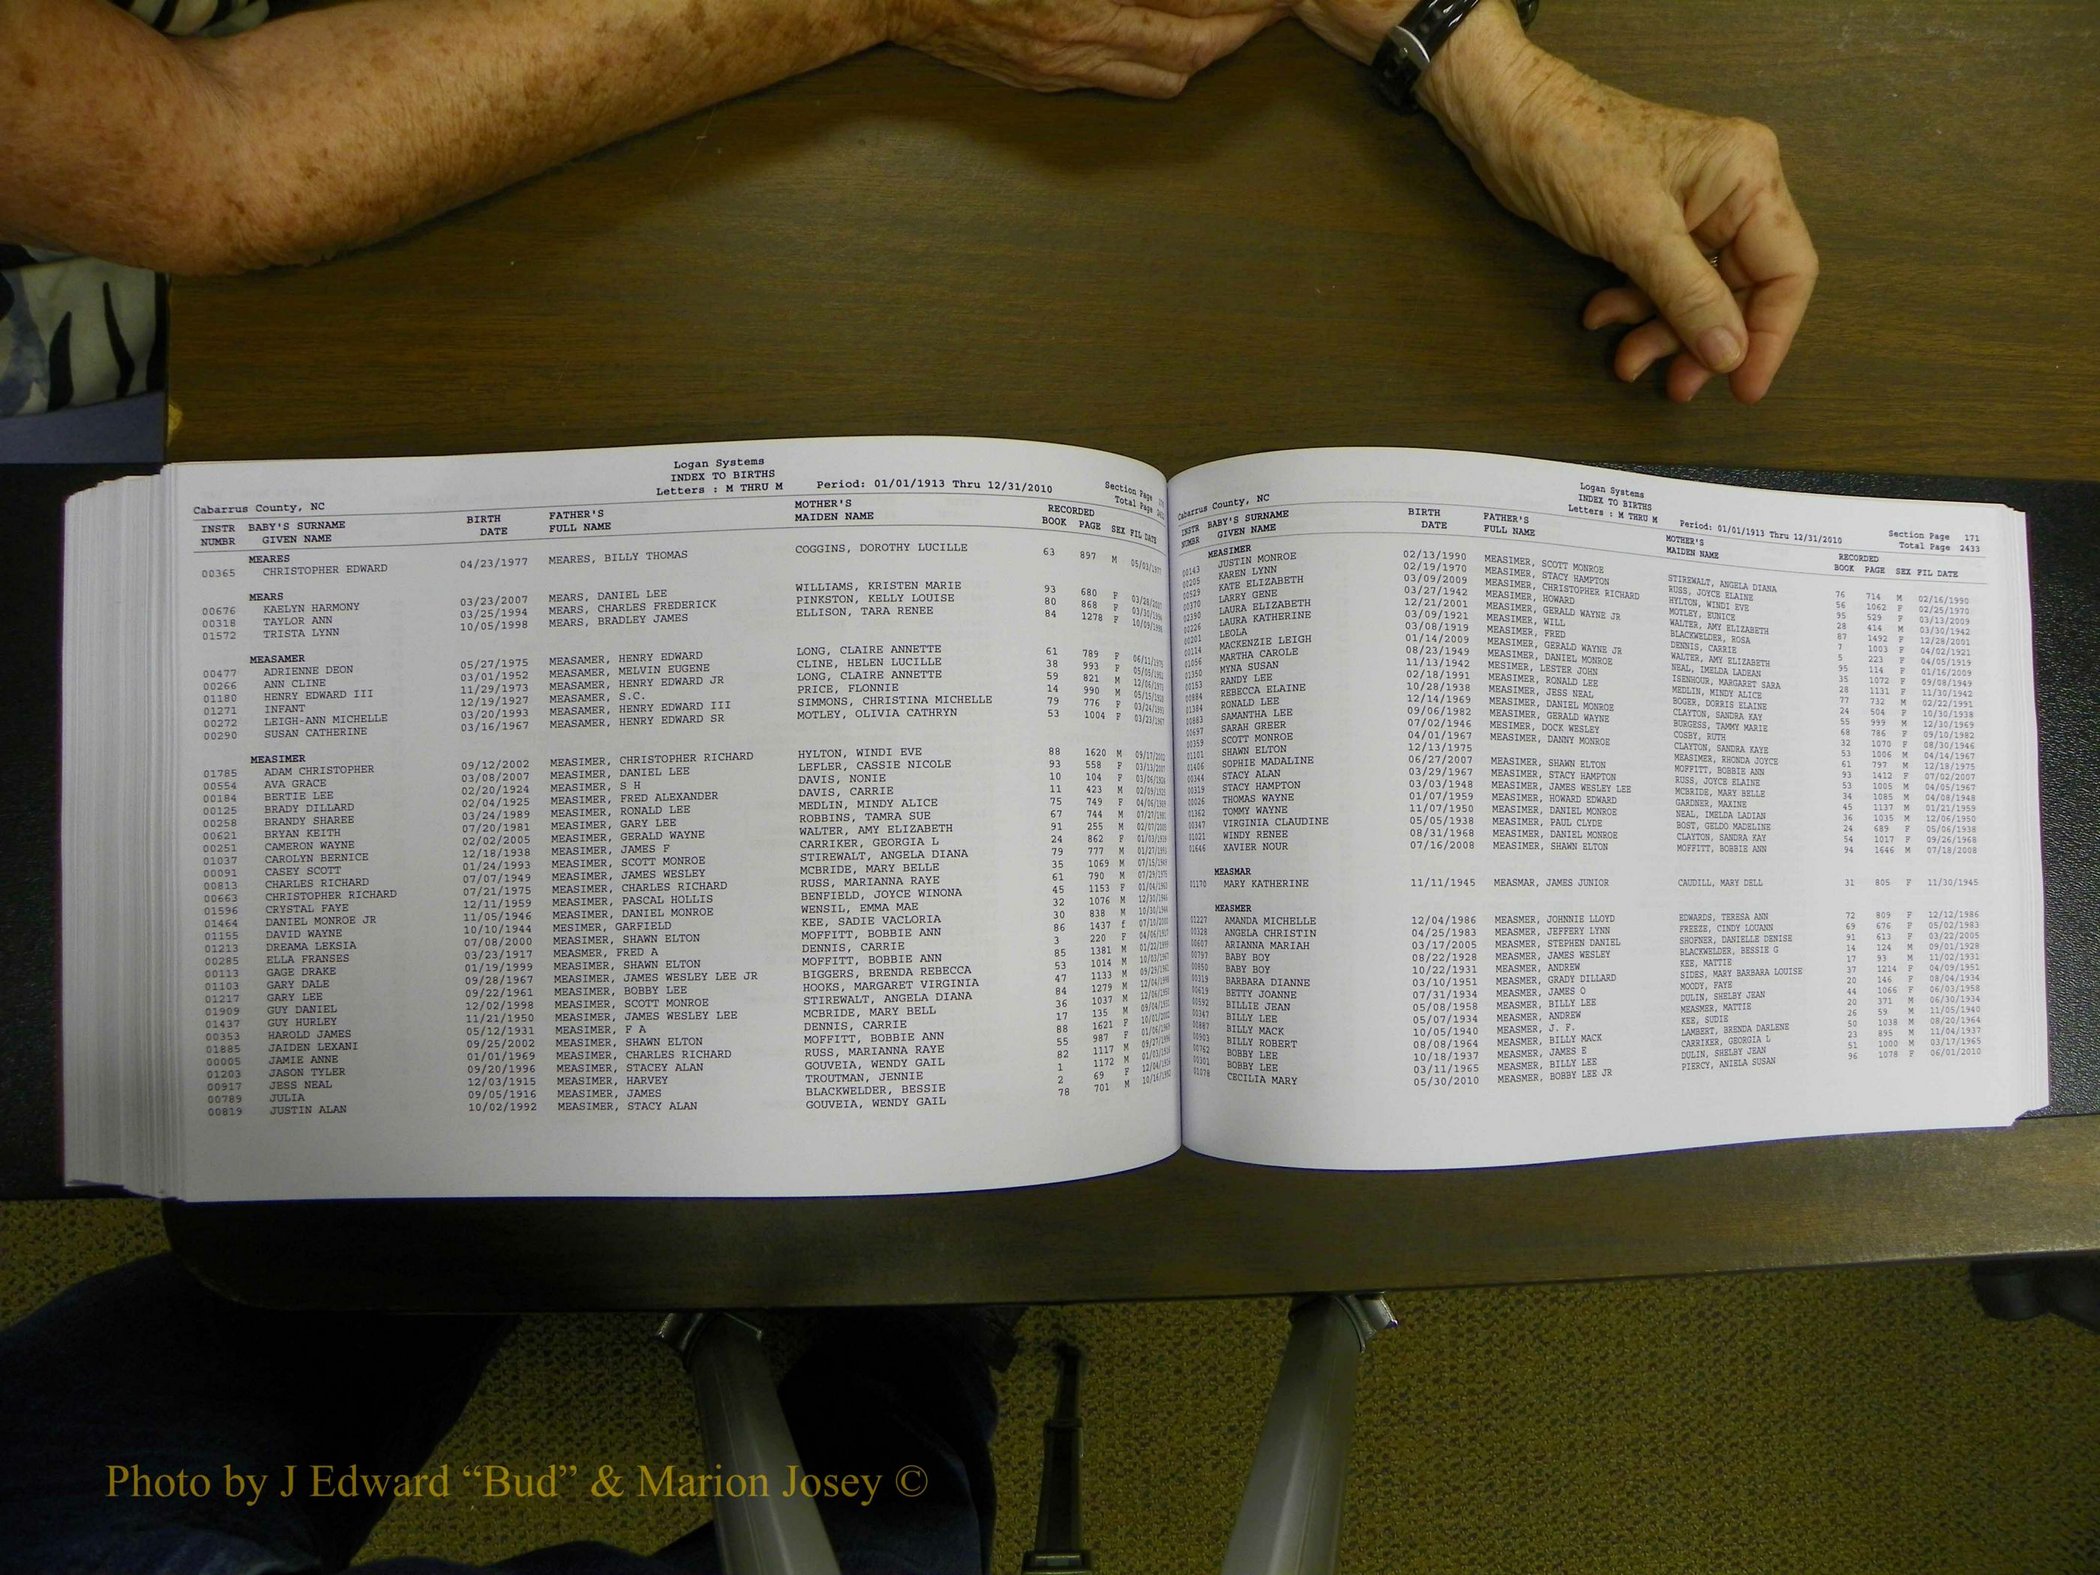 Logan Systems
INDEX TO BIRTHS
Letters : M THRU M Period: 01/01/1913 Thru 12/31/2010 Section Page
Cabarrus County, NC Total Page
INSTR BABY'S SURNAME BIRTH FATHER'S MOTHER'S RECORDED
NUMBR GIVEN NAME DATE FULL NAME MAIDEN NAME BOOK PAGE SEX FIL DATE
MEARES
00365 CHRISTOPHER EDWARD 04/23/1977 MEARES, BILLY THOMAS COGGINS, DOROTHY LUCILLE 63 897 M 05/03/1977
MEARS
00676 KAELYN HARMONY 03/23/2007 MEARS, DANIEL LEE WILLIAMS, KRISTEN MARIE 93 680 F 03/28/2007
00318 TAYLOR ANN 03/25/1994 MEARS, CHARLES FREDERICK PINKSTON, KELLY LOUISE 80 868 F 03/30/1994
01572 TRISTA LYNN 10/05/1998 MEARS, BRADLEY JAMES ELLISON, TARA RENEE 84 1278 F 10/09/1998
MEASAMER
00477 ADRIENNE DEON 05/27/1975 MEASAMER, HENRY EDWARD LONG, CLAIRE ANNETTE 61 789 F 06/11/1975
00266 ANN CLINE 03/01/1952 MEASAMER, MELVIN EUGENE CLINE, HELEN LUCILLE 38 993 F 05/05/1952
01180 HENRY EDWARD III 11/29/1973 MEASAMER, HENRY EDWARD JR LONG, CLAIRE ANNETTE 59 821 M 12/06/1973
01271 INFANT 12/19/1927 MEASAMER, S.C. PRICE, FLONNIE 14 990 M 05/15/1928
00272 LEIGH-ANN MICHELLE 03/20/1993 MEASAMER, HENRY EDWARD III SIMMONS, CHRISTINA MICHELLE 79 776 F 03/24/1993
00290 SUSAN CATHERINE 03/16/1967 MEASAMER, HENRY EDWARD SR MOTLEY, OLIVIA CATHRYN 53 1004 F 03/23/1967
MEASIMER
01785 ADAM CHRISTOPHER 09/12/2002 MEASIMER, CHRISTOPHER RICHARD HYLTON, WINDI EVE 88 1620 M 09/17/2002
00554 AVA GRACE 03/08/2007 MEASIMER, DANIEL LEE LEFLER, CASSIE NICOLE 93 558 F 03/13/2007
00184 BERTIE LEE 02/20/1924 MEASIMER, S H DAVIS, NONIE 10 104 F 03/06/1924
00125 BRADY DILLARD 02/04/1925 MEASIMER, FRED ALEXANDER DAVIS, CARRIE 11 423 M 02/09/1925
00258 BRANDY SHAREE 03/24/1989 MEASIMER, RONALD LEE MEDLIN, MINDY ALICE 75 749 F 04/06/1989
00621 BRYAN KEITH 07/20/1981 MEASIMER, GARY LEE ROBBINS, TAMRA SUE 67 744 M 07/27/1981
00251 CAMERON WAYNE 02/02/2005 MEASIMER, GERALD WAYNE WALTER, AMY ELIZABETH 91 255 M 02/07/2005
01037 CAROLYN BERNICE 12/18/1938 MEASIMER, JAMES F CARRIKER, GEORGIA L 24 862 F 01/03/1939
00091 CASEY SCOTT 01/24/1993 MEASIMER, SCOTT MONROE STIREWALT, ANGELA DIANA 79 777 M 01/27/1993
00813 CHARLES RICHARD 07/07/1949 MEASIMER, JAMES WESLEY MCBRIDE, MARY BELLE 35 1069 M 07/15/1949
00663 CHRISTOPHER RICHARD 07/21/1975 MEASIMER, CHARLES RICHARD RUSS, MARIANNA RAYE 61 790 M 07/29/1975
01596 CRYSTAL FAYE 12/11/1959 MEASIMER, PASCAL HOLLIS BENFIELD, JOYCE WINONA 45 1153 F 01/04/1960
01464 DANIEL MONROE JR 11/05/1946 MEASIMER, DANIEL MONROE WENSIL, EMMA MAE 32 1076 M 12/30/1946
01155 DAVID WAYNE 10/10/1944 MESIMER, GARFIELD KEE, SADIE VACLORIA 30 838 M 10/30/1944
01213 DREAMA LEKSIA 07/08/2000 MEASIMER, SHAWN ELTON MOFFITT, BOBBIE ANN 86 1437 f 07/10/2000
00285 ELLA FRANSES 03/23/1917 MEASMER, FRED A DENNIS, CARRIE 3 220 F 04/06/1917
00113 GAGE DRAKE 01/19/1999 MEASIMER, SHAWN ELTON MOFFITT, BOBBIE ANN 85 1381 M 01/22/1999
01103 GARY DALE 09/28/1967 MEASIMER, JAMES WESLEY LEE JR BIGGERS, BRENDA REBECCA 53 1014 M 10/03/1967
01217 GARY LEE 09/22/1961 MEASIMER, BOBBY LEE HOOKS, MARGARET VIRGINIA 47 1133 M 09/29/1961
01909 GUY DANIEL 12/02/1998 MEASIMER, SCOTT MONROE STIREWALT, ANGELA DIANA 84 1279 M 12/04/1998
01437 GUY HURLEY 11/21/1950 MEASIMER, JAMES WESLEY LEE MCBRIDE, MARY BELL 36 1037 M 12/06/1950
00353 HAROLD JAMES 05/12/1931 MEASIMER, F A DENNIS, CARRIE 17 135 M 09/04/1931
01885 JAIDEN LEXANI 09/25/2002 MEASIMER, SHAWN ELTON MOFFITT, BOBBIE ANN 88 1621 F 10/01/2002
00005 JAMIE ANNE 01/01/1969 MEASIMER, CHARLES RICHARD RUSS, MARIANNA RAYE 55 987 F 01/06/1969
01203 JASON TYLER 09/20/1996 MEASIMER, STACEY ALAN GOUVEIA, WENDY GAIL 82 1117 M 09/27/1996
00917 JESS NEAL 12/03/1915 MEASIMER, HARVEY TROUTMAN, JENNIE 1 1172 M 01/03/1916
00789 JULIA 09/05/1916 MEASIMER, JAMES BLACKWELDER, BESSIE 2 69 F 12/04/1916
00819 JUSTIN ALAN 10/02/1992 MEASIMER, STACY ALAN GOUVEIA, WENDY GAIL 78 701 M 10/16/1992
Logan Systems
INDEX TO BIRTHS
Letters : M THRU M Period: 01/01/1913 Thru 12/31/2010 Section Page 171
Cabarrus County, NC Total Page 2433
INSTR BABY'S SURNAME BIRTH FATHER'S MOTHER'S RECORDED
NUMBR GIVEN NAME DATE FULL NAME MAIDEN NAME BOOK PAGE SEX FIL DATE
MEASIMER
00143 JUSTIN MONROE 02/13/1990 MEASIMER, SCOTT MONROE STIREWALT, ANGELA DIANA 76 714 M 02/16/1990
00205 KAREN LYNN 02/19/1970 MEASIMER, STACY HAMPTON RUSS, JOYCE ELAINE 56 1062 F 02/25/1970
00529 KATE ELIZABETH 03/09/2009 MEASIMER, CHRISTOPHER RICHARD HYLTON, WINDI EVE 95 529 F 03/13/2009
00370 LARRY GENE 03/27/1942 MEASIMER, HOWARD MOTLEY, EUNICE 28 414 M 03/30/1942
02390 LAURA ELIZABETH 12/21/2001 MEASIMER, GERALD WAYNE JR WALTER, AMY ELIZABETH 87 1492 F 12/28/2001
00226 LAURA KATHERINE 03/09/1921 MEASIMER, WILL BLACKWELDER, ROSA 7 1003 F 04/02/1921
00201 LEOLA 03/08/1919 MEASIMER, FRED DENNIS, CARRIE 5 223 F 04/05/1919
00114 MACKENZIE LEIGH 01/14/2009 MEASIMER, GERALD WAYNE JR WALTER, AMY ELIZABETH 95 114 F 01/16/2009
01056 MARTHA CAROLE 08/23/1949 MEASIMER, DANIEL MONROE NEAL, IMELDA LADEAN 35 1072 F 09/08/1949
01350 MYNA SUSAN 11/13/1942 MESIMER, LESTER JOHN ISENHOUR, MARGARET SARA 28 1131 F 11/30/1942
00153 RANDY LEE 02/18/1991 MEASIMER, RONALD LEE MEDLIN, MINDY ALICE 77 732 M 02/22/1991
00884 REBECCA ELAINE 10/28/1938 MEASIMER, JESS NEAL BOGER, DORRIS ELAINE 24 504 F 10/30/1938
01384 RONALD LEE 12/14/1969 MEASIMER, DANIEL MONROE CLAYTON, SANDRA KAY 55 999 M 12/30/1969
00883 SAMANTHA LEE 09/06/1982 MEASIMER, GERALD WAYNE BURGESS, TAMMY MARIE 68 786 F 09/10/1982
00697 SARAH GREER 07/02/1946 MESIMER, DOCK WESLEY COSBY, RUTH 32 1070 F 08/30/1946
00359 SCOTT MONROE 04/01/1967 MEASIMER, DANNY MONROE CLAYTON, SANDRA KAYE 53 1006 M 04/14/1967
01101 SHAWN ELTON 12/13/1975 MEASIMER, RHONDA JOYCE 61 797 M 12/18/1975
01406 SOPHIE MADALINE 06/27/2007 MEASIMER, SHAWN ELTON MOFFITT, BOBBIE ANN 93 1412 F 07/02/2007
00344 STACY ALAN 03/29/1967 MEASIMER, STACY HAMPTON RUSS, JOYCE ELAINE 53 1005 M 04/05/1967
00319 STACY HAMPTON 03/03/1948 MEASIMER, JAMES WESLEY LEE MCBRIDE, MARY BELLE 34 1085 M 04/08/1948
00026 THOMAS WAYNE 01/07/1959 MEASIMER, HOWARD EDWARD GARDNER, MAXINE 45 1137 M 01/21/1959
01362 TOMMY WAYNE 11/07/1950 MEASIMER, DANIEL MONROE NEAL, IMELDA LADIAN 36 1035 M 12/06/1950
00347 VIRGINIA CLAUDINE 05/05/1938 MEASIMER, PAUL CLYDE BOST, GELDO MADELINE 24 689 F 05/06/1938
01021 WINDY RENEE 08/31/1968 MEASIMER, DANIEL MONROE CLAYTON, SANDRA KAY 54 1017 F 09/26/1968
01646 XAVIER NOUR 07/16/2008 MEASIMER, SHAWN ELTON MOFFITT, BOBBIE ANN 94 1646 M 07/18/2008
MEASMAR
01170 MARY KATHERINE 11/11/1945 MEASMAR, JAMES JUNIOR CAUDILL, MARY DELL 31 805 F 11/30/1945
MEASMER
01227 AMANDA MICHELLE 12/04/1986 MEASMER, JOHNNIE LLOYD EDWARDS, TERESA ANN 72 809 F 12/12/1986
00328 ANGELA CHRISTIN 04/25/1983 MEASMER, JEFFERY LYNN FREEZE, CINDY LOUANN 69 676 F 05/02/1983
00607 ARIANNA MARIAH 03/17/2005 MEASMER, STEPHEN DANIEL SHOFNER, DANIELLE DENISE 91 613 F 03/22/2005
00797 BABY BOY 08/22/1928 MEASMER, JAMES WESLEY BLACKWELDER, BESSIE G 14 124 M 09/01/1928
00850 BABY BOY 10/22/1931 MEASMER, ANDREW KEE, MATTIE 17 93 M 11/02/1931
00319 BARBARA DIANNE 03/10/1951 MEASMER, GRADY DILLARD SIDES, MARY BARBARA LOUISE 37 1214 F 04/09/1951
00619 BETTY JOANNE 07/31/1934 MEASMER, JAMES O MOODY, FAYE 20 146 F 08/04/1934
00592 BILLIE JEAN 05/08/1958 MEASMER, BILLY LEE DULIN, SHELBY JEAN 44 1066 F 06/03/1958
00347 BILLY LEE 05/07/1934 MEASMER, ANDREW MEASMER, MATTIE 20 371 M 06/30/1934
00887 BILLY MACK 10/05/1940 MEASMER, J. F. KEE, SUDIE 26 59 M 11/05/1940
00903 BILLY ROBERT 08/08/1964 MEASMER, BILLY MACK LAMBERT, BRENDA DARLENE 50 1038 M 08/20/1964
00762 BOBBY LEE 10/18/1937 MEASMER, JAMES E CARRIKER, GEORGIA L 23 895 M 11/04/1937
00301 BOBBY LEE 03/11/1965 MEASMER, BILLY LEE DULIN, SHELBY JEAN 51 1000 M 03/17/1965
01078 CECILIA MARY 05/30/2010 MEASMER, BOBBY LEE JR PIERCY, ANIELA SUSAN 96 1078 F 06/01/2010
Photo by J Edward “Bud” & Marion Josey ©